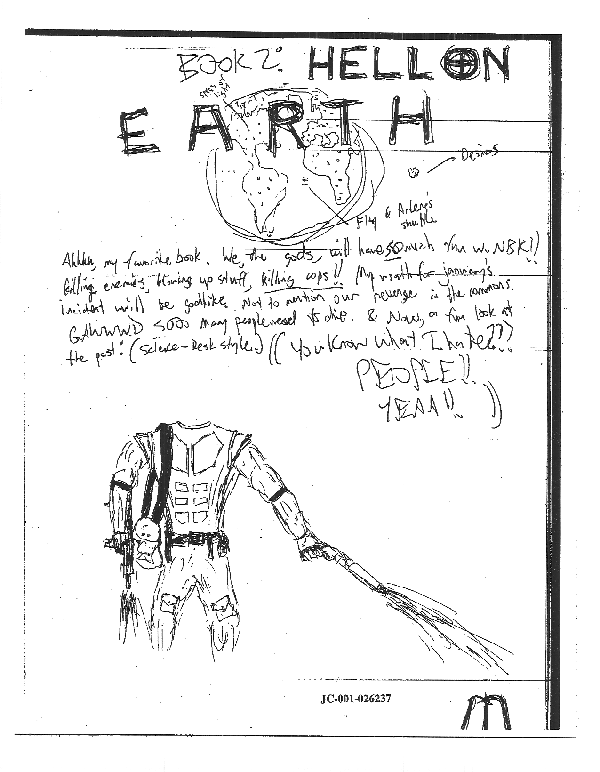 BOOK 2:
HELL ON
EARTH
Deimos
Flag & Arlene's
shuttle
Ahhhh, my favorite book. We, the gods, will have so much fun w NBK!!
killing enemies, blowing up stuff, killing cops!! My wrath for january's
incident will be godlike. Not to mention our revenge in the commons.
GAWWWD sooo many people need to die. & Now, a fun look at
the past! (Science-Desk style) (( You know what I hate!???
PEOPLE!!
YEAA!! ))
JC-001-026237